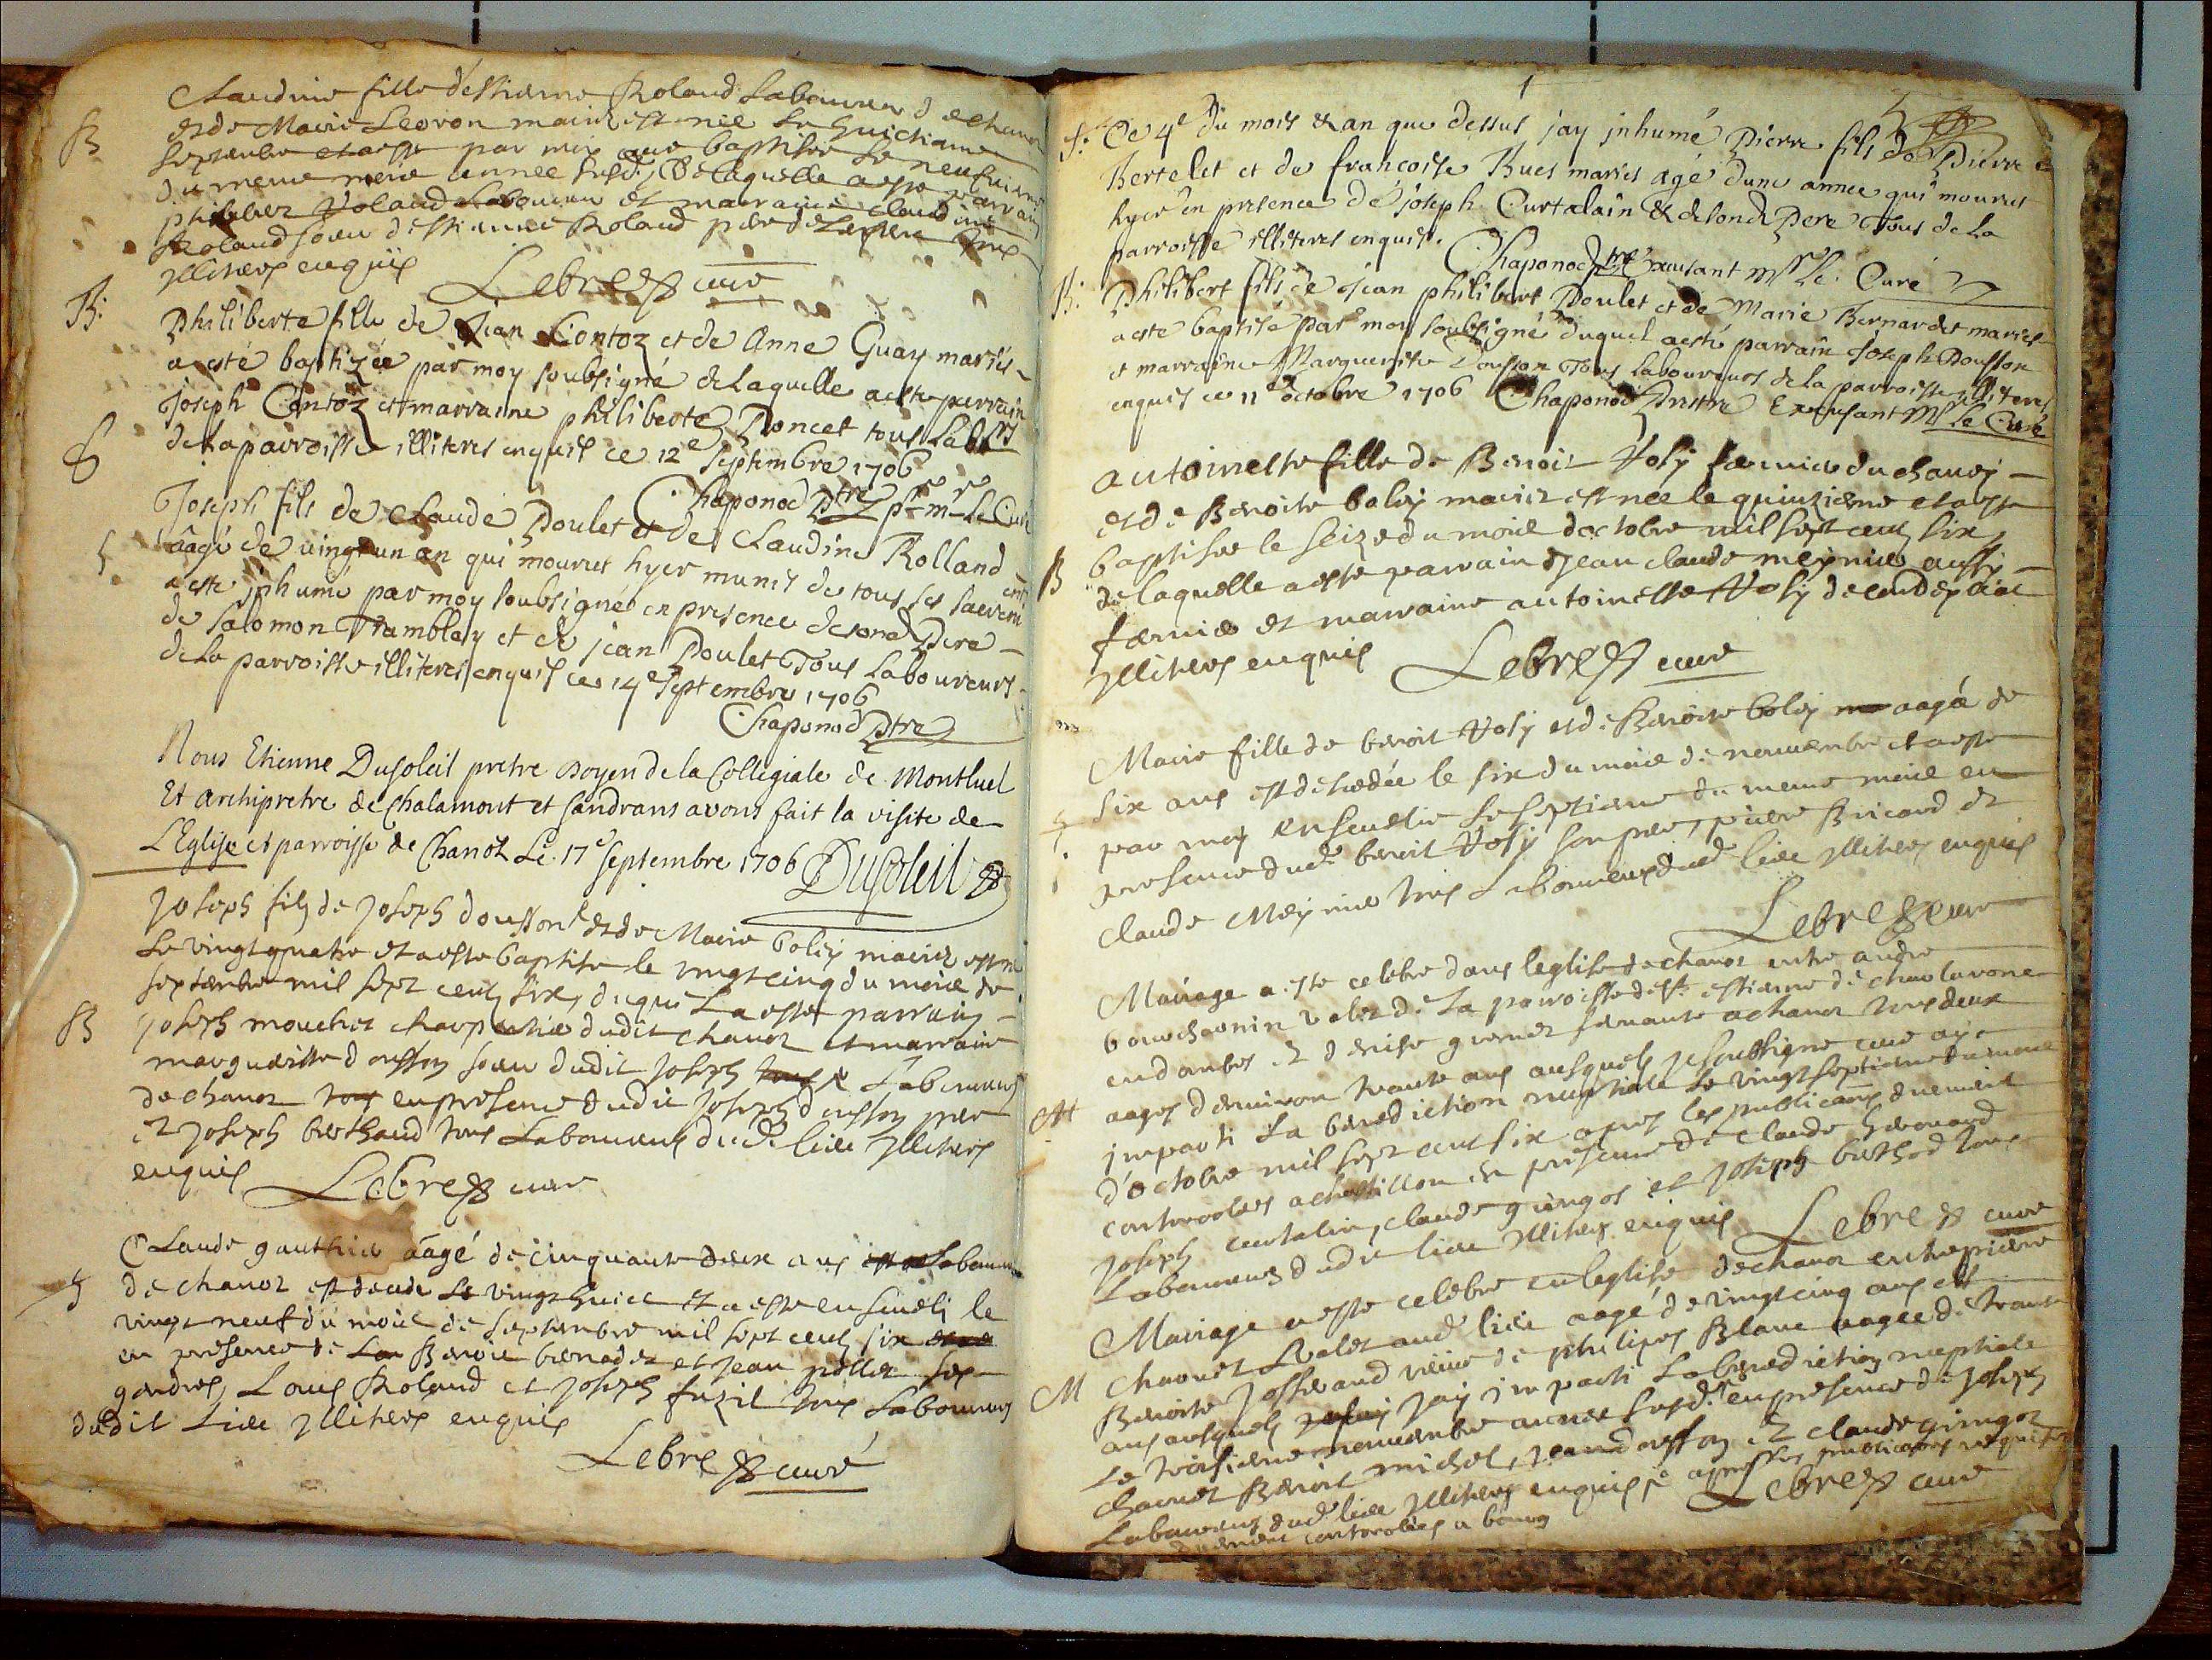 B
Claudine fille destienne Roland Laboureur de chanoz
et de Marie Levron mariez est née le huictieme
septembre et a esté par moy curé baptisée le neufvieme
du meme mois année susd. de laquelle a esté parrain
philibert Roland Laboureur et marraine claudine
Roland soeur destienne Roland pere tous
illiteres enquis Lebre curé
B.
Philiberte fille de Jean Contoz et de Anne Guay mariés
a esté baptizée par moy soubsigné de Laquelle a esté parrain
Joseph Contoz et marraine philiberte Poncet tous Labrs
de la parroisse illiteres enquis ce 12e septembre 1706
Chaponod Ptre pr mr Le Curé
S
Joseph fils de Claude Poulet et de Claudine Rolland
âagé de vingt un an qui mourut hyer munis de tous ses sacremens
a esté inhumé par moy soubsigné en presence de sond Pere
de salomon Tramblay et de jean Poulet Tous Laboureurs
de La parroisse illiteres enquis ce 14e septembre 1706
Chaponod Ptre
Nous Etienne Dusoleil pretre Doyen de la Collegiale de Montluel
Et archipretre de Chalamont et Sandrans avons fait la visite de
L'Eglise et parroisse de Chanoz Le 17e septembre 1706 Dusoleil
B
Joseph filz de Joseph dousson et de Marie boley mariez est né
Le vingt quatre et a esté baptisé le vingt cinq du mois de
septembre mil sept cents six, duquel a esté parrain
Joseph mouchet charpentier dudit chanoz et marraine
marguerite dousson soeur dudit Joseph tous Laboureurs
de chanoz tous en presence dudit Joseph dousson pere
et Joseph berthaud tous Laboureurs dud. lieu illiteres
enquis Lebre curé
S
Claude gauthier âagé de cinquante deux ans Laboureur
de chanoz est decedé Le vingt huict et a esté ensevely le
vingt neuf du mois de septembre mil sept cents six
en presence de Benoit bernadet et Jean pollet ses
gendres, Louis Roland et Joseph fuzil tous Laboureurs
dudit Lieu illiteres enquis
Lebre curé
S. Ce 4e du mois & an que dessus jay inhumé Pierre fils de Pierre
Bertelet et de francoise Bues mariés agé dune année qui mourut
hyer en presence de joseph Curtalain & de sond Pere Tous de La
parroisse illiteres enquis. Chaponod Ptre Excusant Mr Le Curé
B.
Philibert fils de Jean philibert Poulet et de Marie Bernardet mariés
a esté baptisé par moy soubsigné duquel a esté parrain Joseph Dousson
et marraine Marguerite Dousson Tous Laboureurs de La parroisse illiteres
enquis ce 11e octobre 1706 Chaponod Prestre Excusant Mr Le Curé
B
antoinette fille de Benoit Josy fermier du chanoy
et de Benoite boley mariez est née le quinzieme et a esté
baptisée le seize du mois doctobre mil sept cents six
de laquelle a esté parrain Jean claude meynier aussy
fermier et marraine antoinette Josy de
illiteres enquis Lebre curé
S.
Marie fille de benoit Josy et de Benoite boley aagée de
six ans est decedée le six du mois de novembre et a esté
par moy ensevelie le septieme du meme mois en
presence dud. benoit Josy son pere, pierre Bricard et
claude Meynier tous Laboureurs dud lieu illiteres enquis
Lebre curé
M
Mariage a esté celebré dans leglise de chanoz entre andré
bourchanin valet de La parroisse de St estienne de chaalaronne
en dombes et denise grenet servante a chanoz tous deux
aagés denviron trante ans ausquels Je soussigné curé ay
imparti La benediction nuptiale Le vingt septieme du mois
d'octobre mil sept cent six apres les publications duement
controolées a chastillon en presence de Claude
Joseph curtalin, claude gringoz et Joseph berthod tous
Laboureurs dudit lieu illiteres enquis Lebre curé
M
Mariage a esté celebré en leglise de chanoz entre pierre
charvet valet aud. lieu aagé de vingt cinq ans et
Benoite Josserand veuve de philipes Blanc aagée de trante
ans ausquels jay imparti La benediction nuptiale
Le troisieme novembre année susd. en presence de Joseph
charvet Benoit michel, Jean dousson et claude gringoz
Laboureurs dud lieu illiteres enquis apres les publications requises
duement controolées a bourg Lebre curé